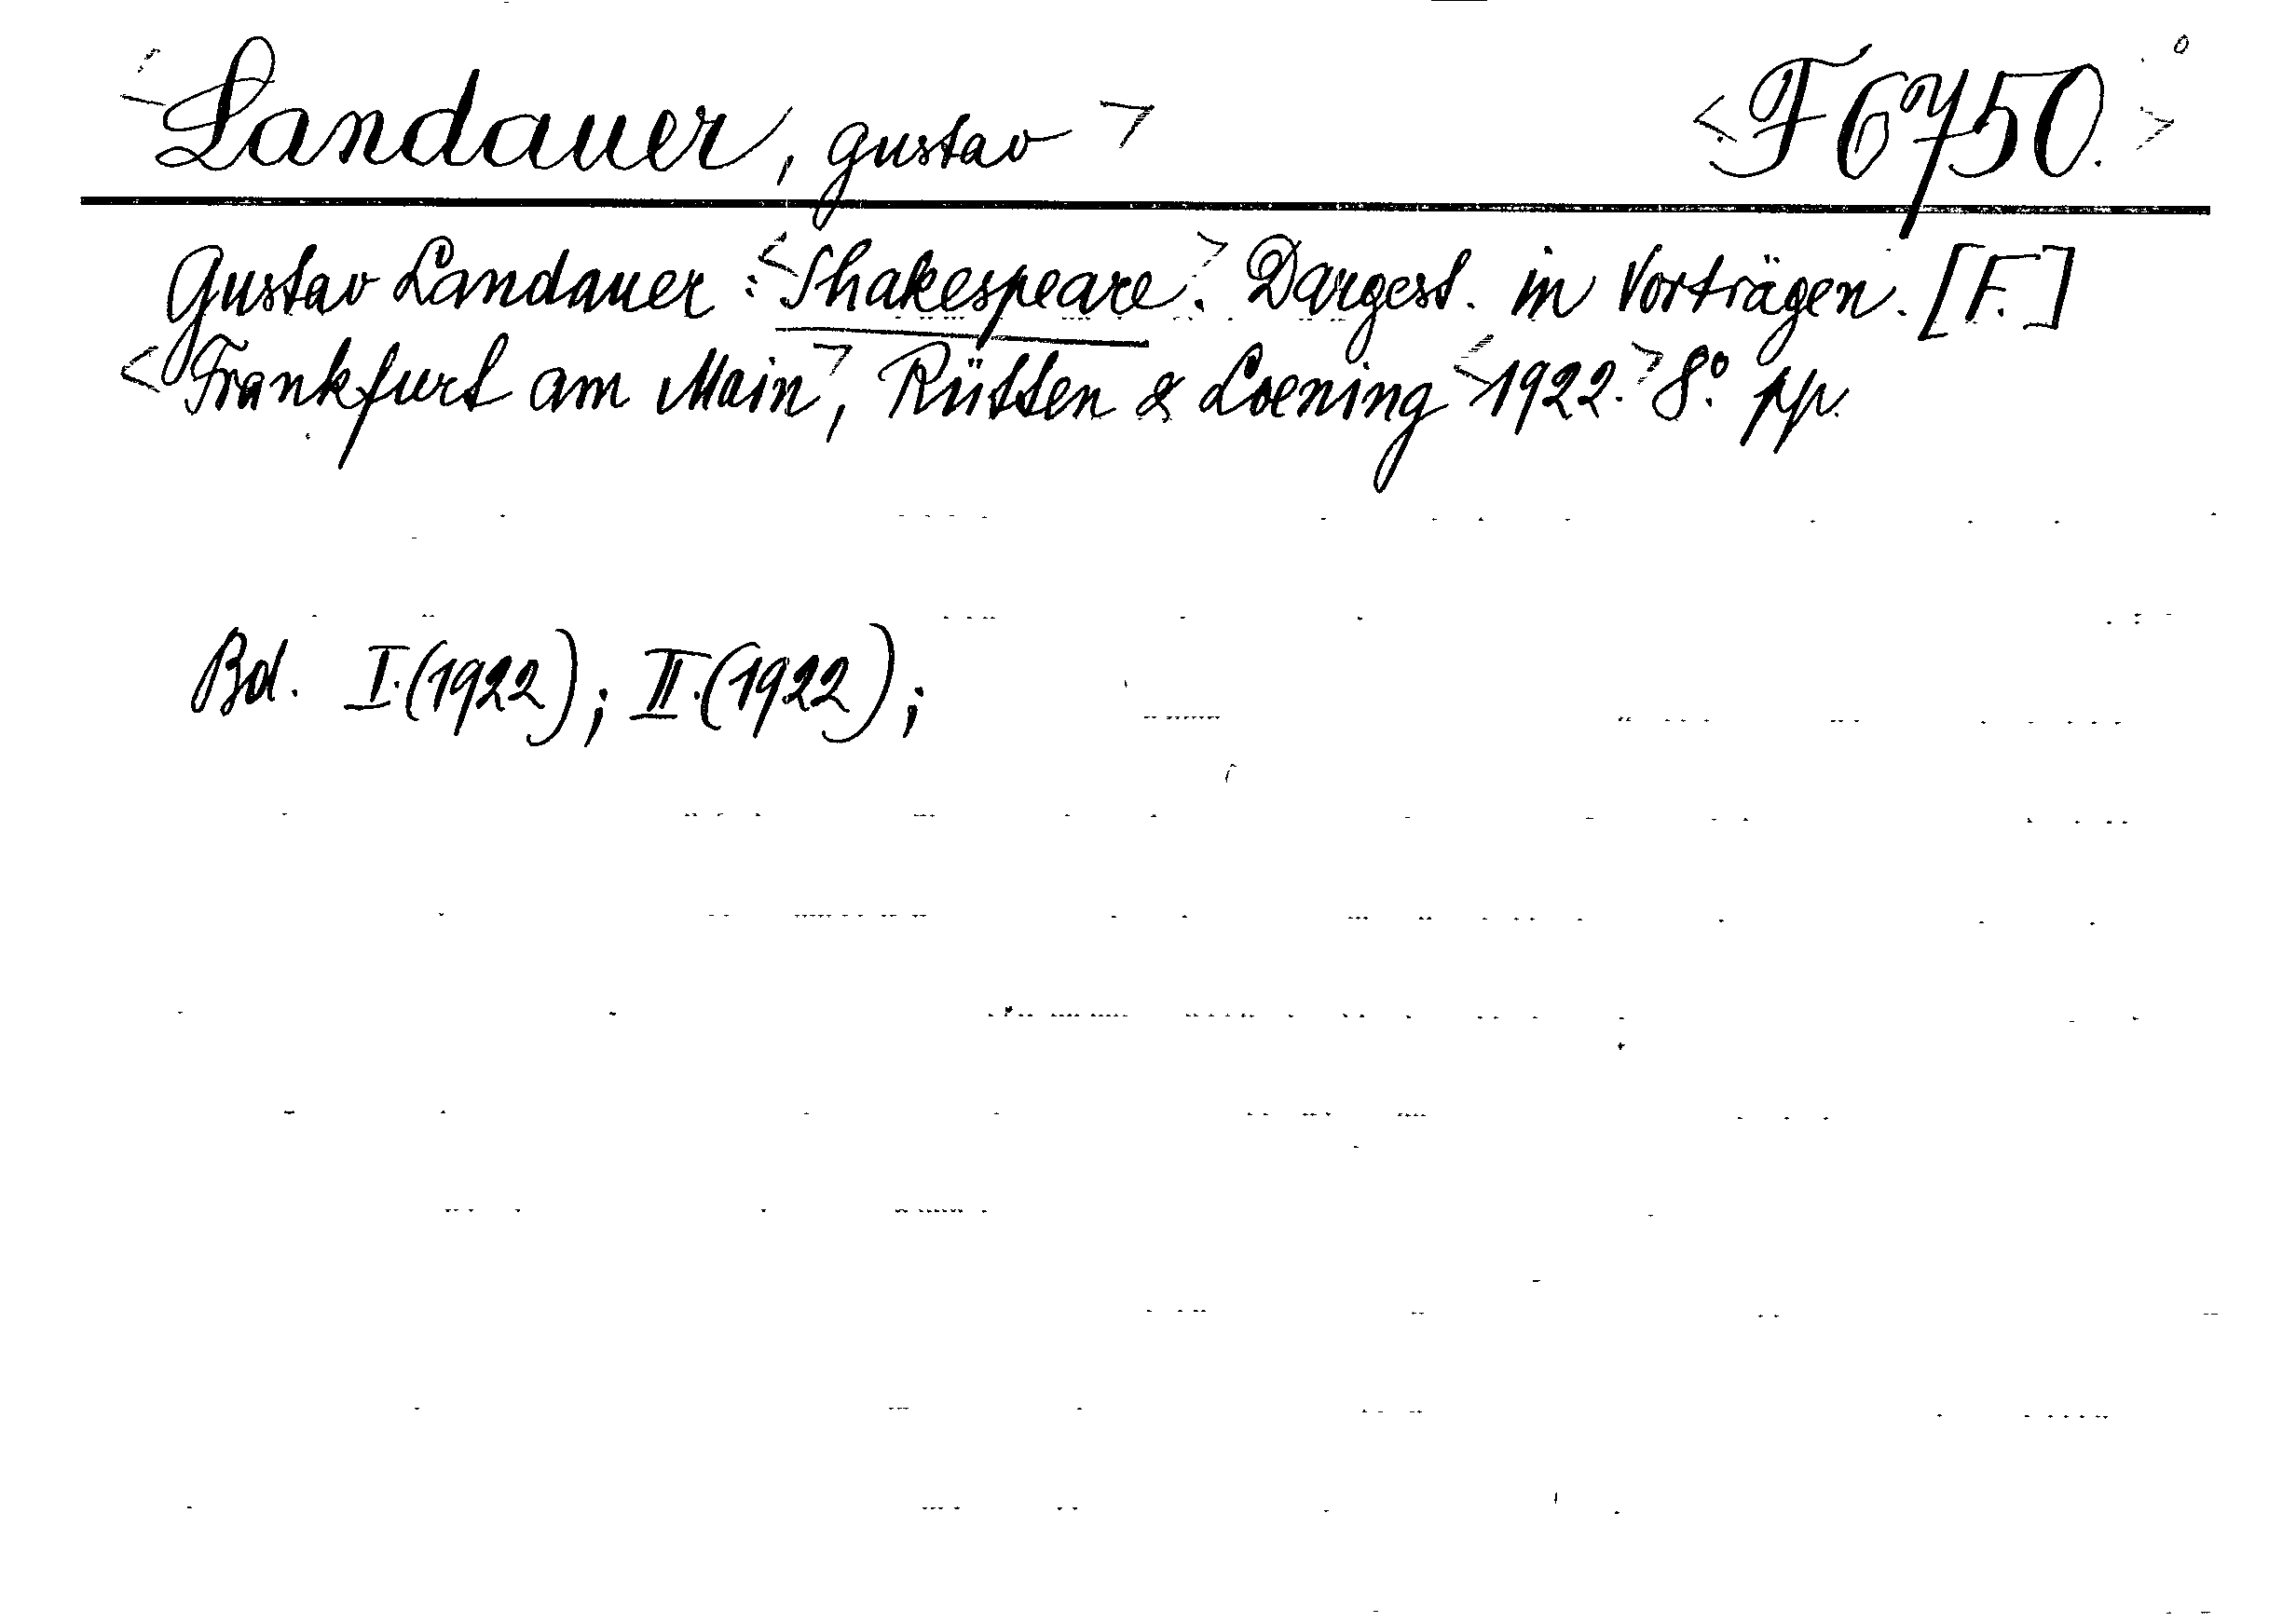 <Landauer, Gustav> <F 6750.>
Gustav Landauer: <Shakespeare.> Dargest. in Vorträgen. [F.]
<Frankfurt am Main>, Rütten & Loening <1922.> 8°. pp.
Bd. I.(1922); II.(1922);